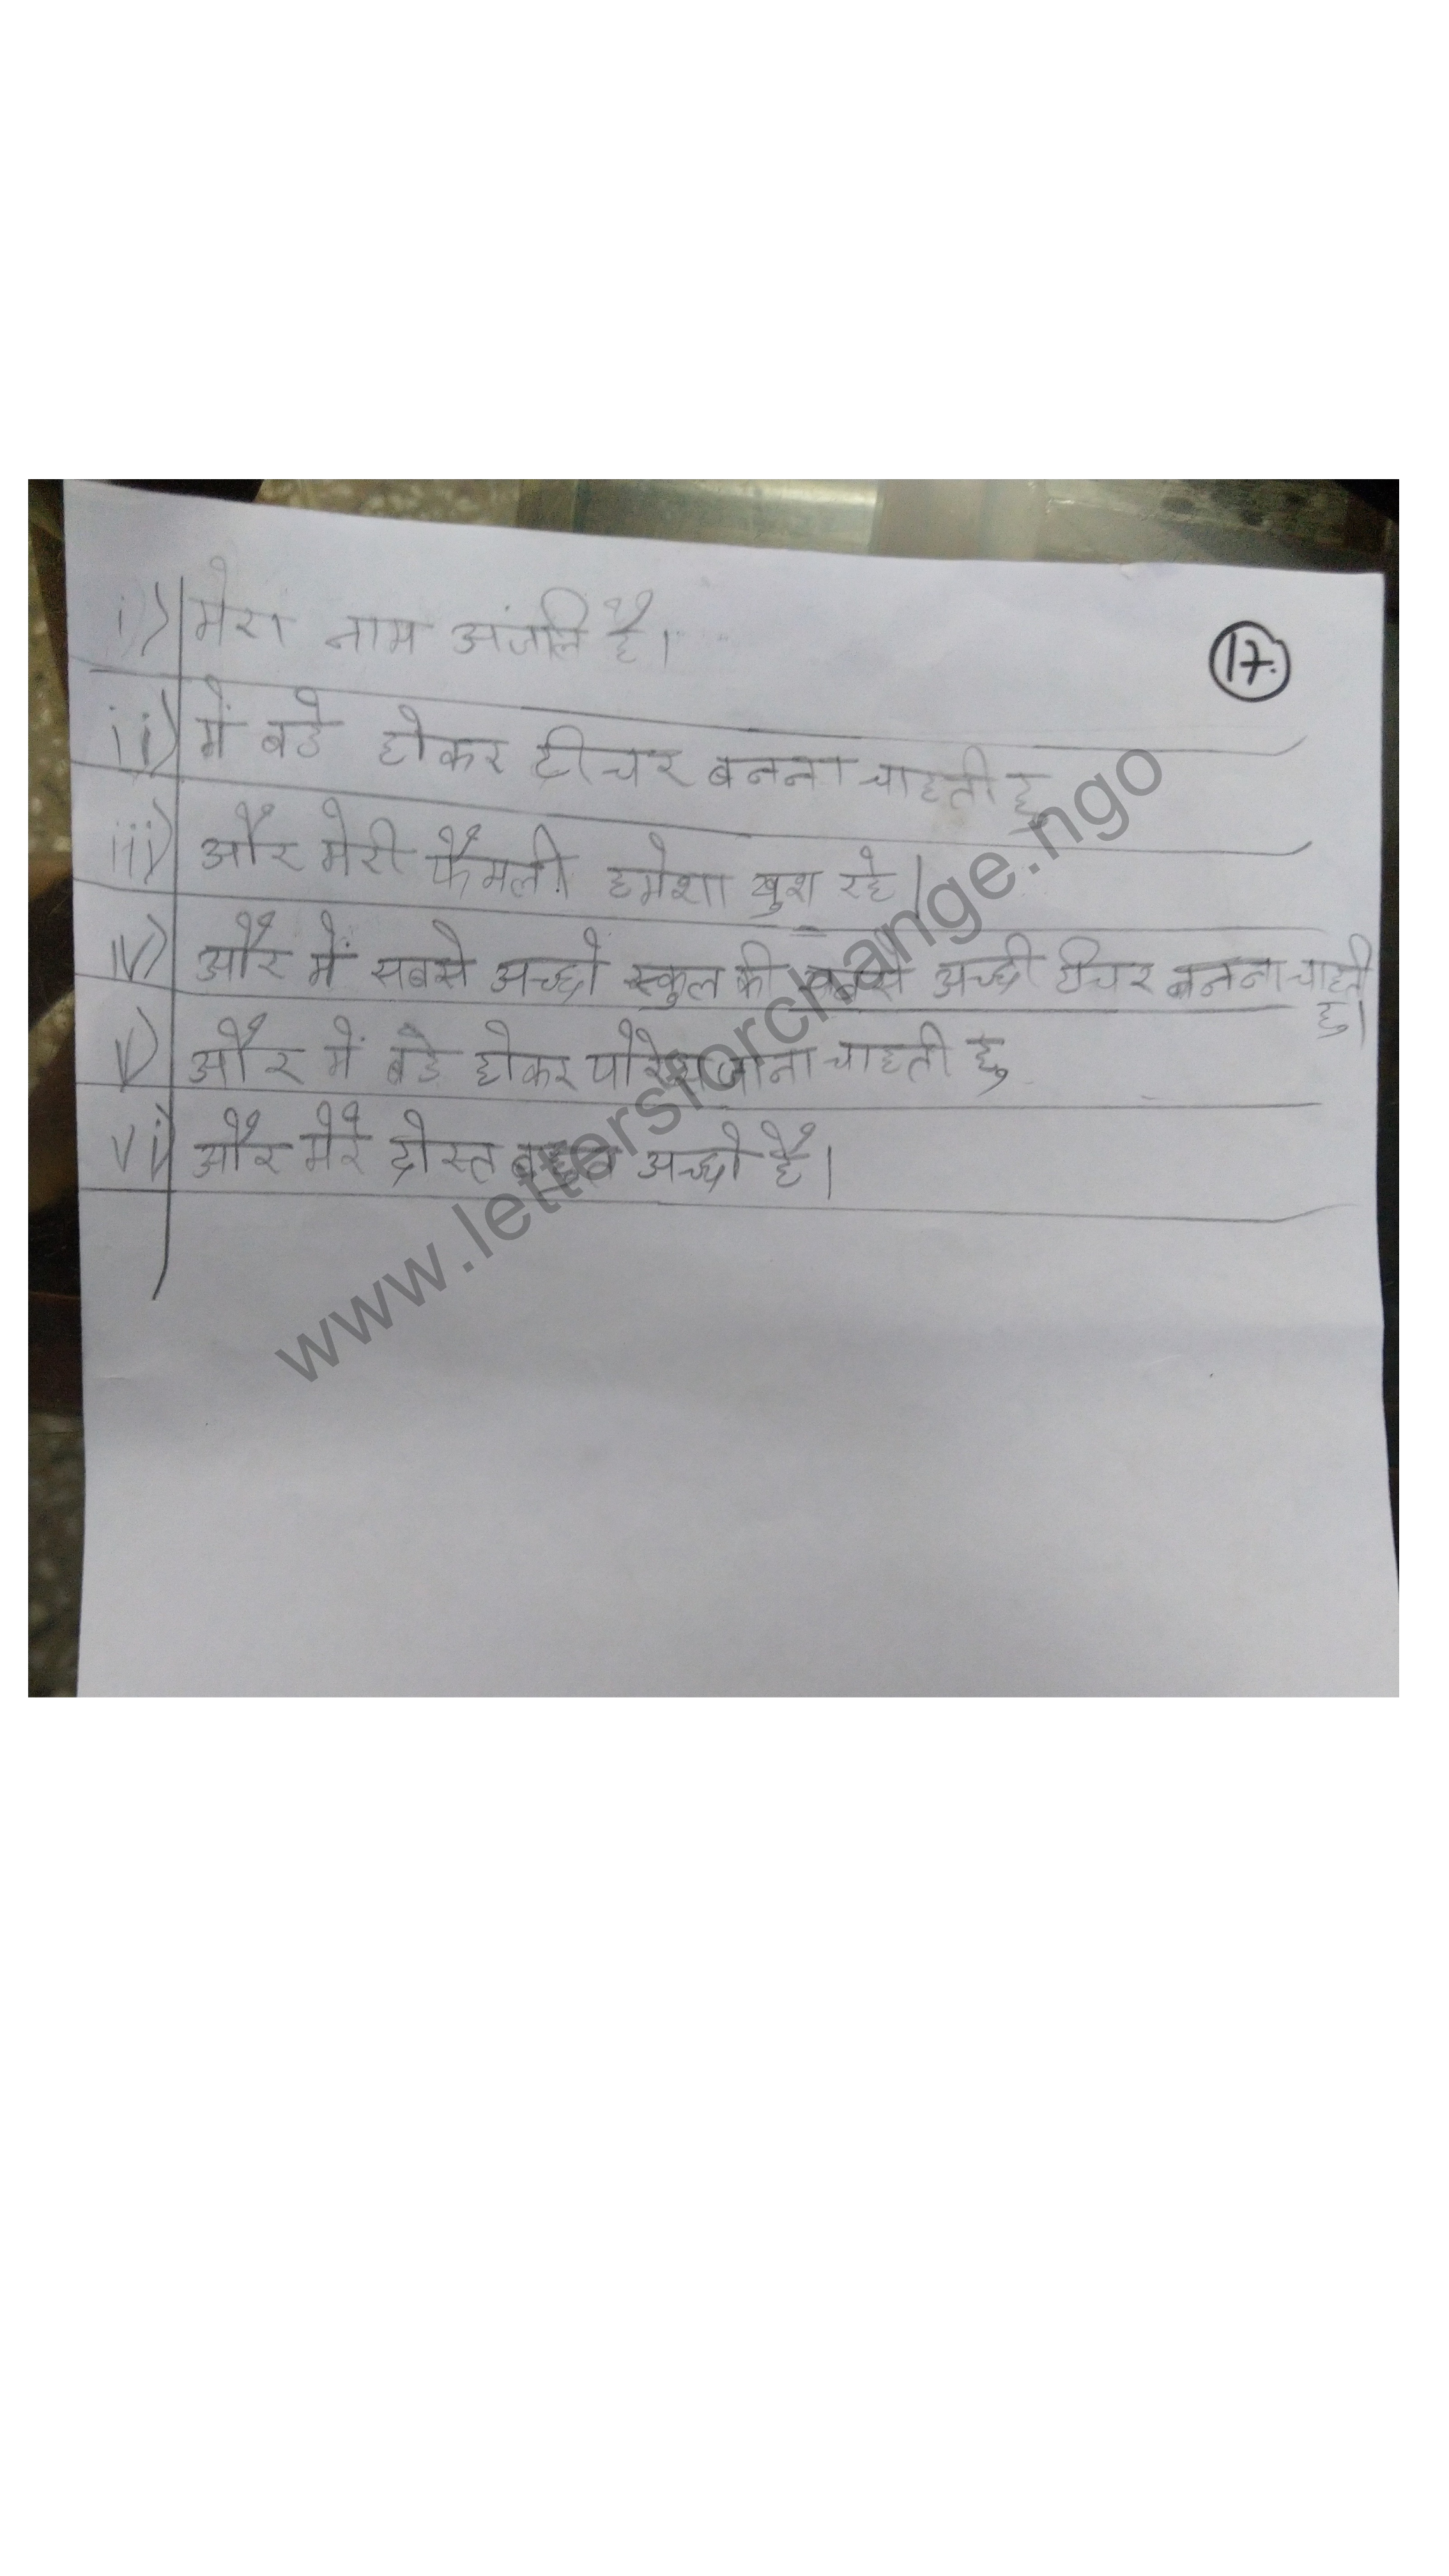 i) मेरा नाम अंजलि है।
17.
ii) में बडे होकर टीचर बनना चाहती हु
iii) और मेरी फैमली हमेशा खुश रहे।
iv) और में सबसे अच्छे स्कुल की सबसे अच्छी टीचर बनना चाहती
हु।
v) और में बडे होकर पेरिस जाना चाहती हु
vi) और मेरे दोस्त बहुत अच्छे है।
www.lettersforchange.ngo